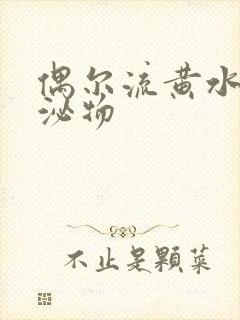 偶尔流黄水
泌物
不止是颗菜